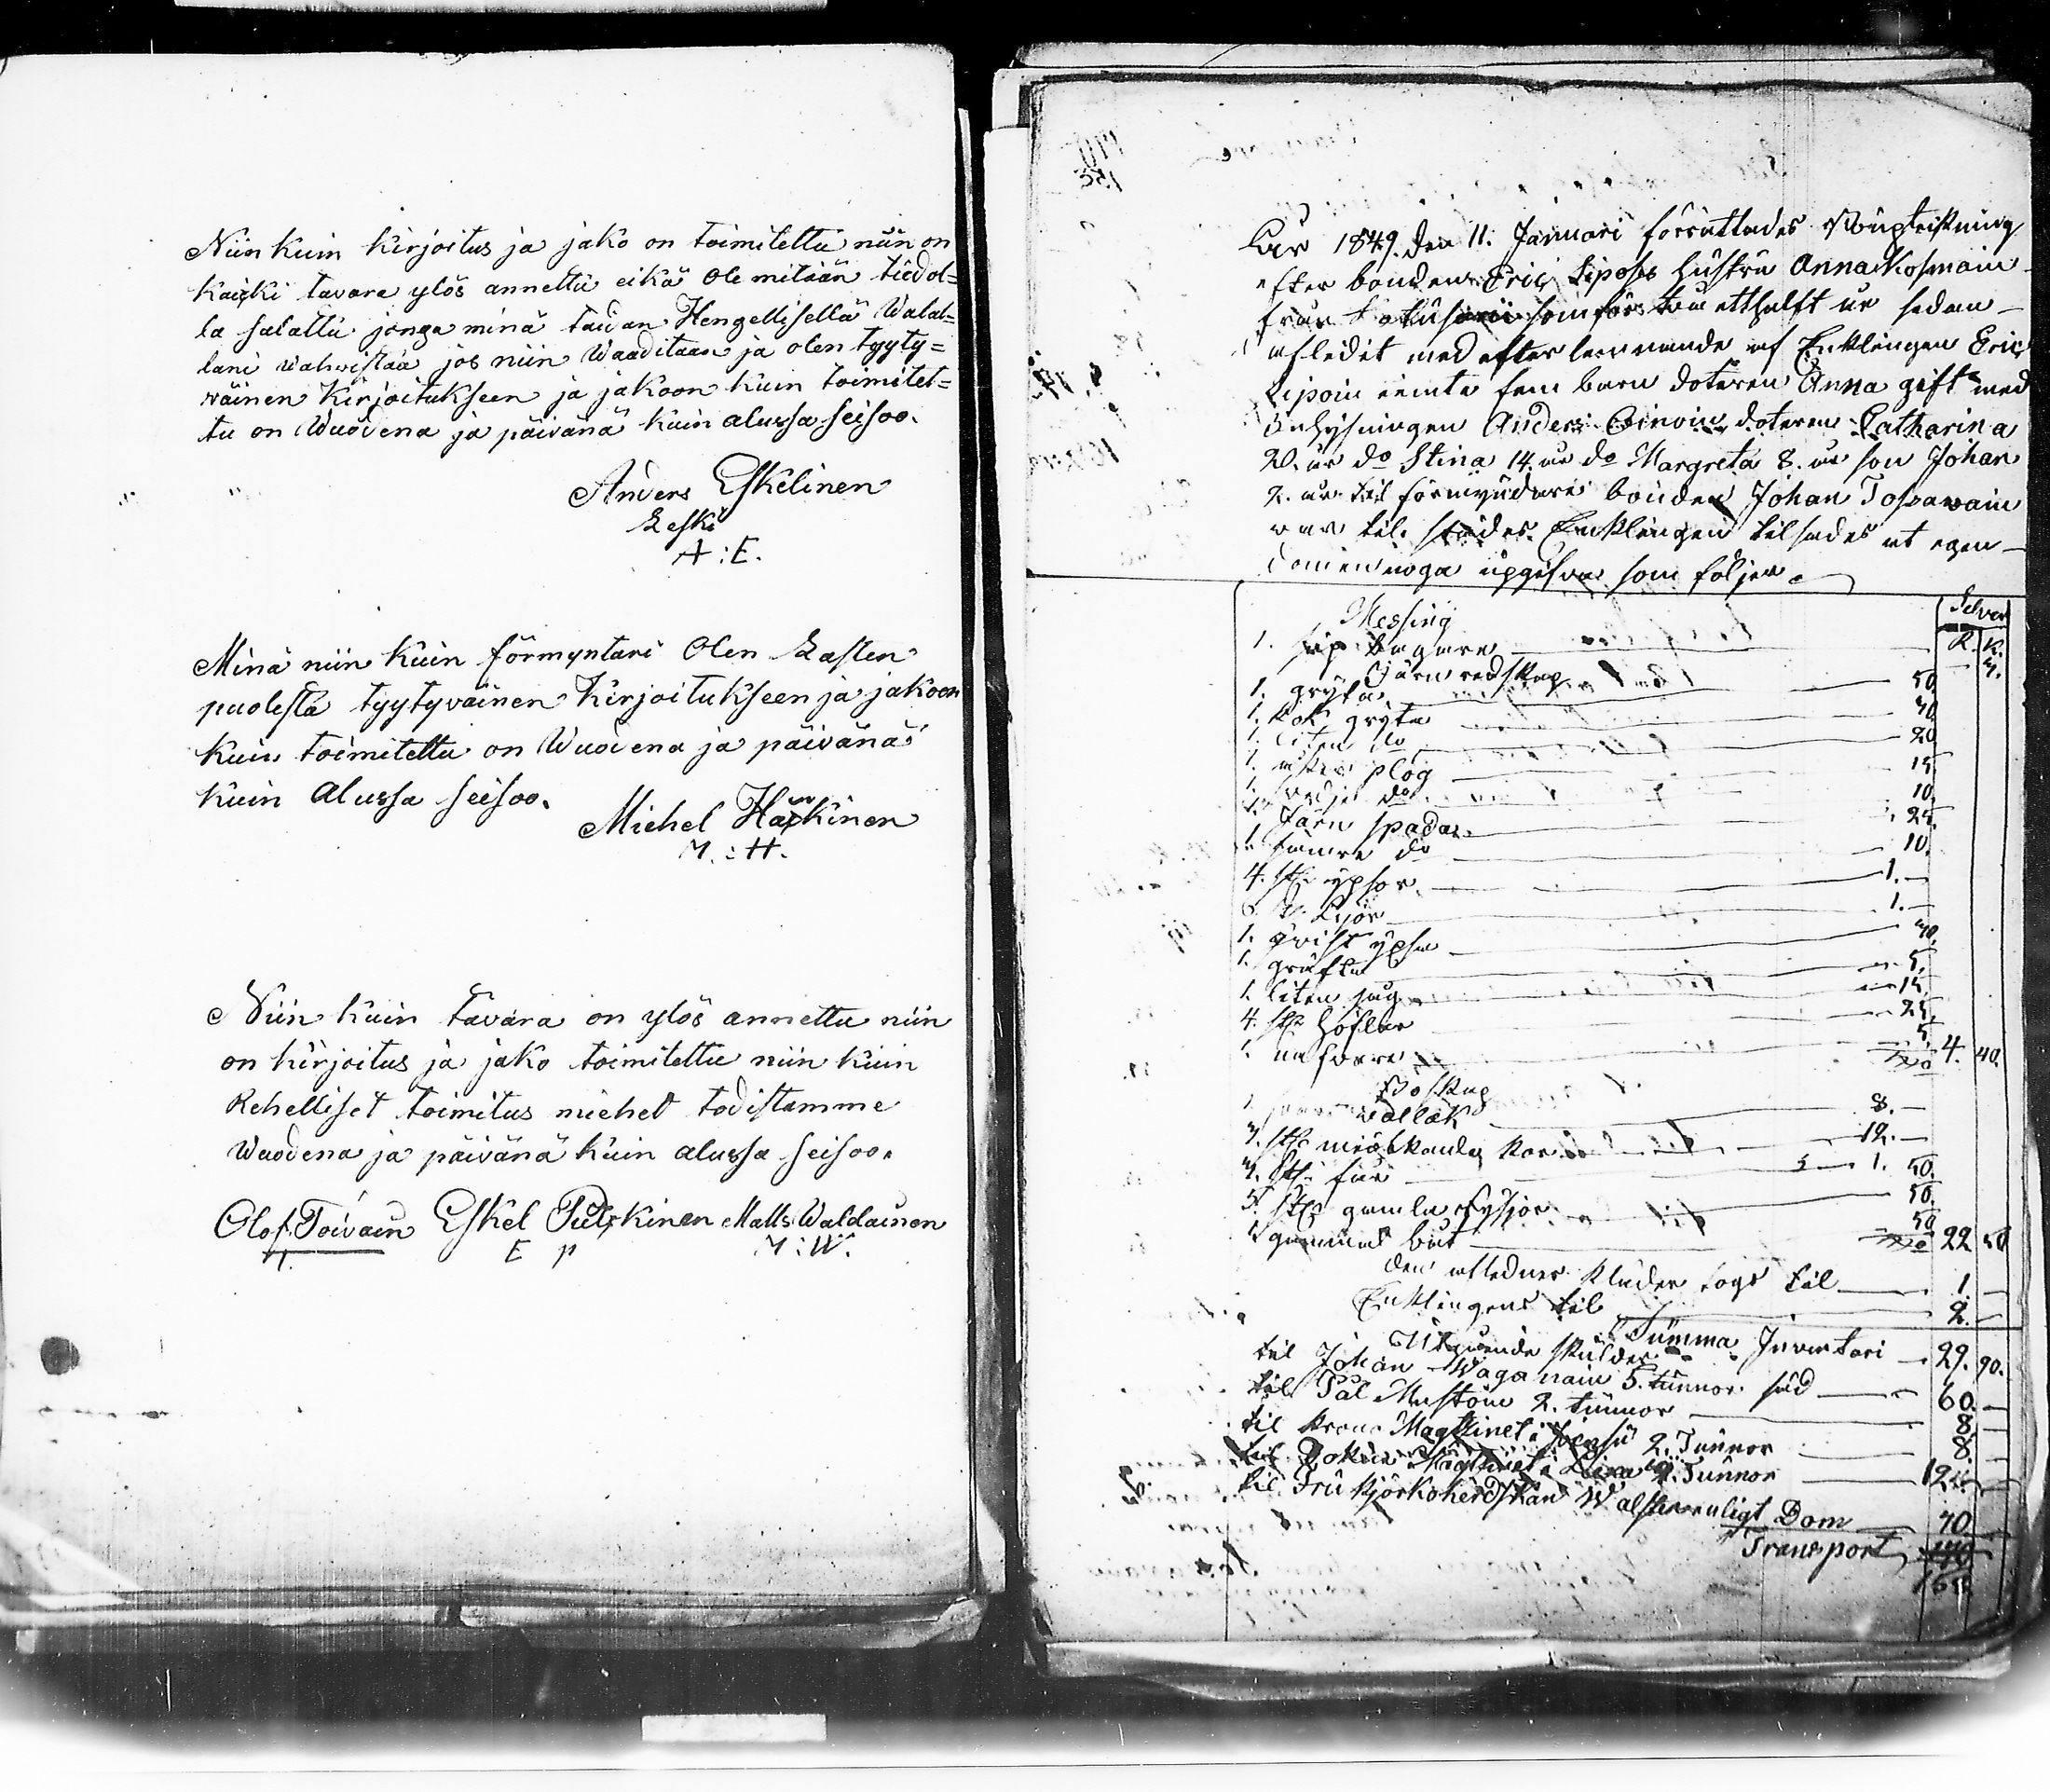 Niin kuin kirjoitus ja jako on toimitettu niin on
kaicki tavara ylös annettu eikä ole mitään tiedol=
la salattu jonga minä taidan Hengellisellä Walal=
lani wahwistaa jos niin Waaditaan ja olen tyyty=
wäinen Kirjoitukseen ja jakoon kuin toimitet=
tu on Wuodena ja päivänä kuin alussa seisoo.
Anders Eskelinen
Leski
A:E.
Minä niin kuin förmyntäri olen Lasten
puolesta tyytyväinen Kirjoitukseen ja jakoon
kuin toimitettu on Wuodena ja päivänä
kuin alussa seisoo.
Michel Häckinen
M.:H.
Niin kuin tavara on ylös annettu niin
on kirjoitus ja jako toimitettu niin kuin
Rehelliset toimitus miehet todistamme
Wuodena ja päivänä kuin alussa seisoo.
Olof Toivain Eskel Pulckinen Matts Waldainen
E P M:W.
År 1849. den 11. Januari förrättades Bouptekning
efter bonden Eric Liposs hustru Anna Kosmain
från som för ett halft år sedan
afledit med efter lemnande af Enklingen Eric
Lipoin jemte fem barn doteren Anna gift med
inhysningen Anders Oinoin doteren Catharina
20. år do Stina 14. år do Margreta 8. år son Johan
2. år til förmyndare bonden Johan Tossavain
var til städes. Enklingen tilsades at egen
domen noga upgifva som följer.
Selver
R. K.
Messing
1.
Järn redskap
1. gryta 50.
1. kok gryta 40.
1. liten do 20
1. plog 15.
1. do 10.
Järn spadar 25.
1. do 10.
4. st: ypsor 1.
6. st: Lijor 1.
1. qvist ypsa 40.
1. gräfta 5.
1. liten sag 15.
4. st: höflar 25.
1. nafvare 5. 4. 40.
Boskap
1. vallak 8.
3. st: miölkande kor 12.
3. st: får 1. 50.
5. st: gamla 50.
1 gammal båt 50 22 50
den aflednes kläder togs til 1.
Enklingens til 2.
Summa Inventari 29. 90.
Utgående skulder
til Johan Waganain 5. tunnor säd 60.
til Pål Mustoin 2. tunnor 8.
til krono Magasinet i 2. Tunnor 8.
til Magasinet i Tunnor 12
til Fru Kjörkoherdskan enligt Dom 70
Transport